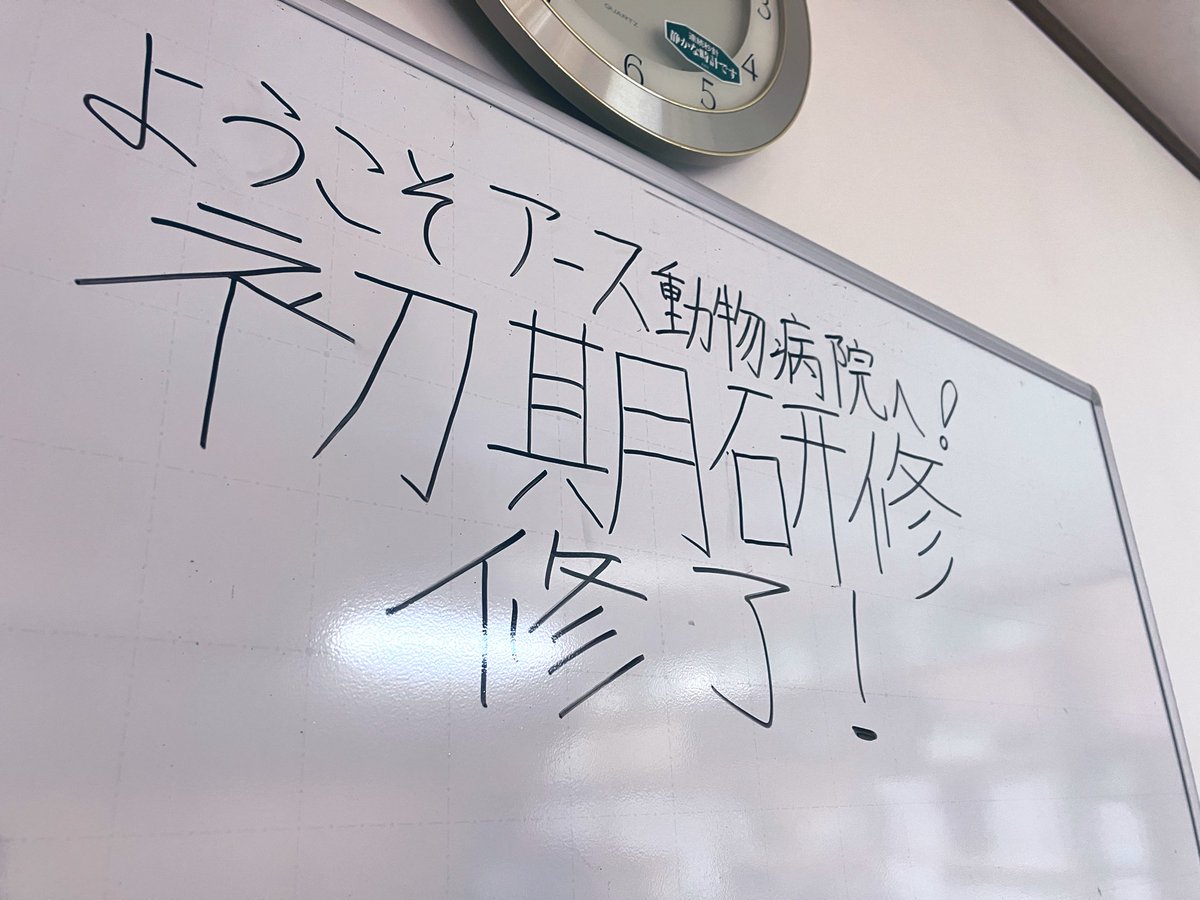 QUANTZ
連続秒針
静かな時計です
3
4
5
6
ようこそアース動物病院へ!
初期研修
修了!